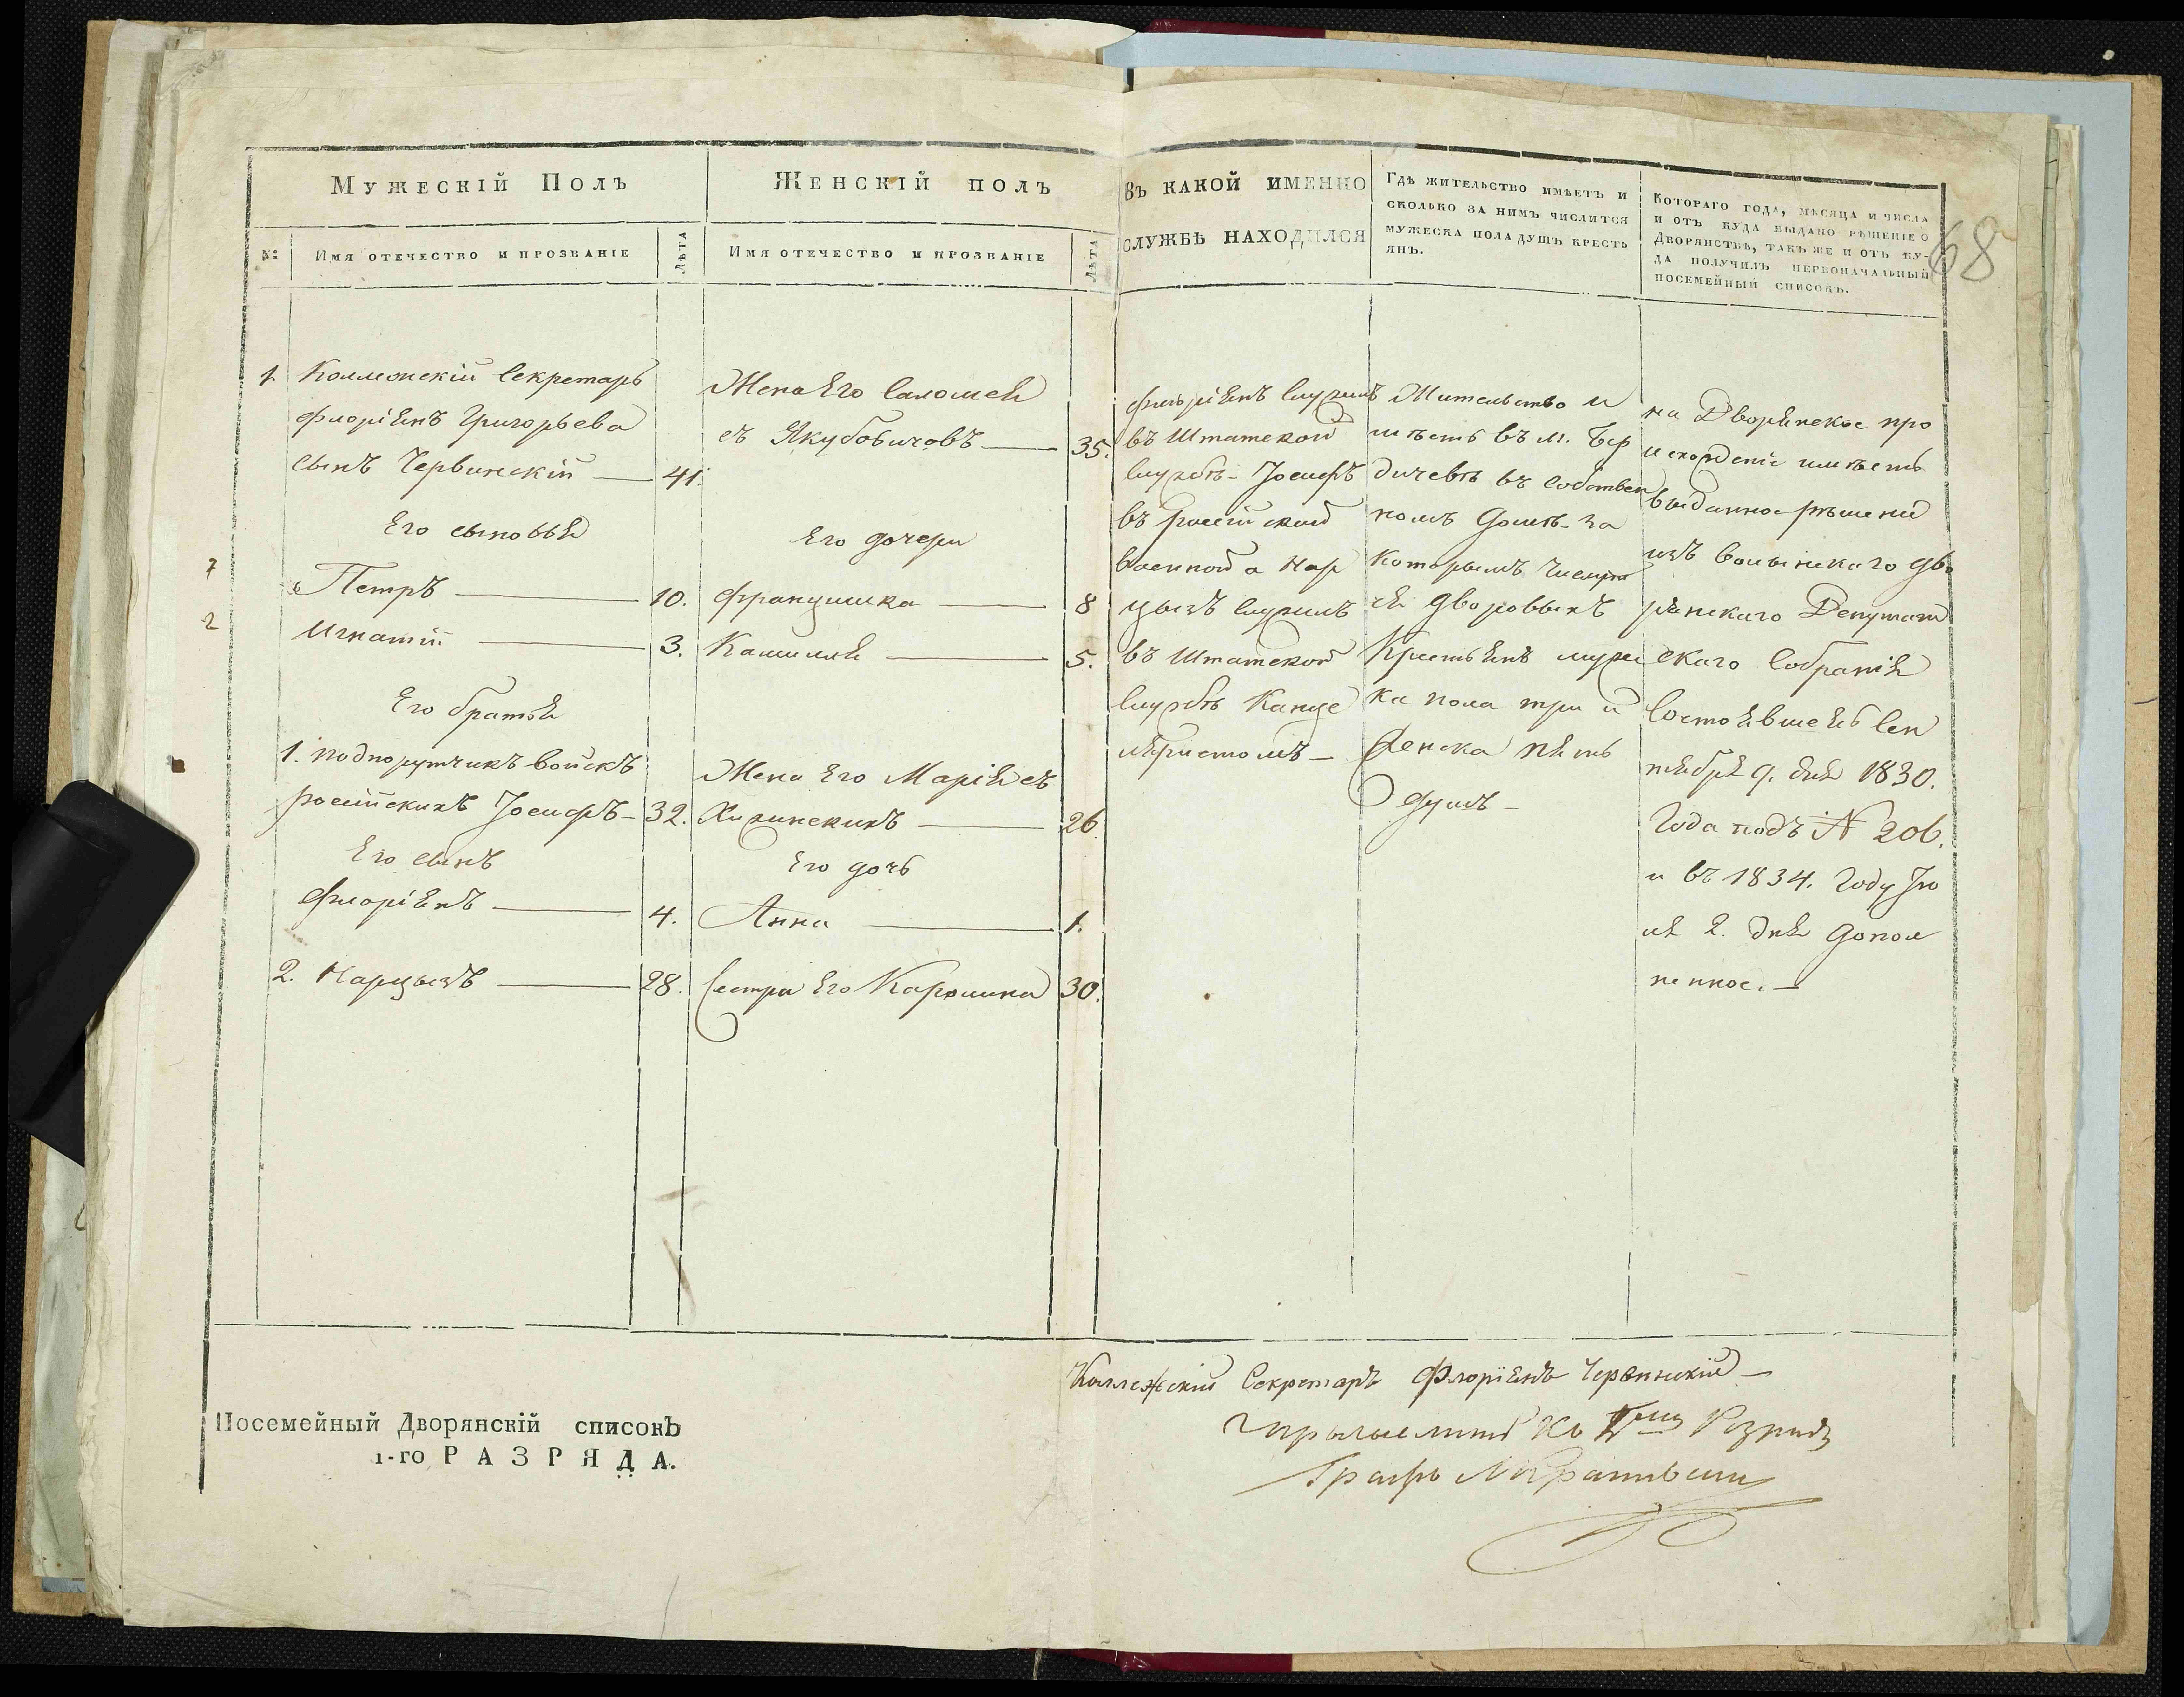 68
Мужескій Полъ
Женскій полъ
Въ какой именно
службѣ находился
Гдѣ жительство имѣетъ и
сколько за нимъ числится
мужеска пола душъ кресть
янъ.
Котораго года, мѣсяца и числа
и отъ куда выдано рѣшеніе о
Дворянствѣ, такъ же и отъ ку-
да получилъ первоначальный
посемейный списокъ.
№:
Имя отечество и прозваніе
Лѣта
Имя отечество и прозваніе
Лѣта
1. Коллежскій Секретарь
Флоріянъ Григорьева
сынъ Червинскій — 41.
Его сыновья
7
Петръ — 10.
2
Игнатій — 3.
Его братья
1. подпорутчикъ войскъ
россійскихъ Іосифъ — 32.
Его сынъ
Флоріянъ — 4.
2. Нарцызъ — 28.
Жена Его Саломея
съ Якубовичовъ — 35.
Его дочери
Францишка — 8
Камилля — 5.
Жена Его Марія съ
Хижинскихъ — 26.
Его дочь
Анна — 1.
Сестра Его Каролина 30.
Флоріянъ служитъ
въ Штатской
службѣ - Іосифъ
въ россійской
военной а Нар
цызъ служилъ
въ Штатской
службѣ Канце
ляристомъ —
Жительство и
мѣетъ въ м. Бер
дичевѣ въ собствен
номъ домѣ - за
которымъ числит
ся дворовыхъ
Крестьянъ муже
ска пола три и
женска пять
душъ —
на Дворянское про
исхожденіе имѣетъ
выданное рѣшеніе
изъ волынскаго дво
рянскаго Депутат
скаго Собранія
состоявшеесь сен
тября 9. дня 1830.
Года подъ № 206.
и въ 1834. Году Ію
ля 2. дня допол
ненное. —
Коллежскій Секретарь Флоріянъ Червинскій —
Посемейный Дворянскій списокъ
1-го РАЗРЯДА.
Графъ